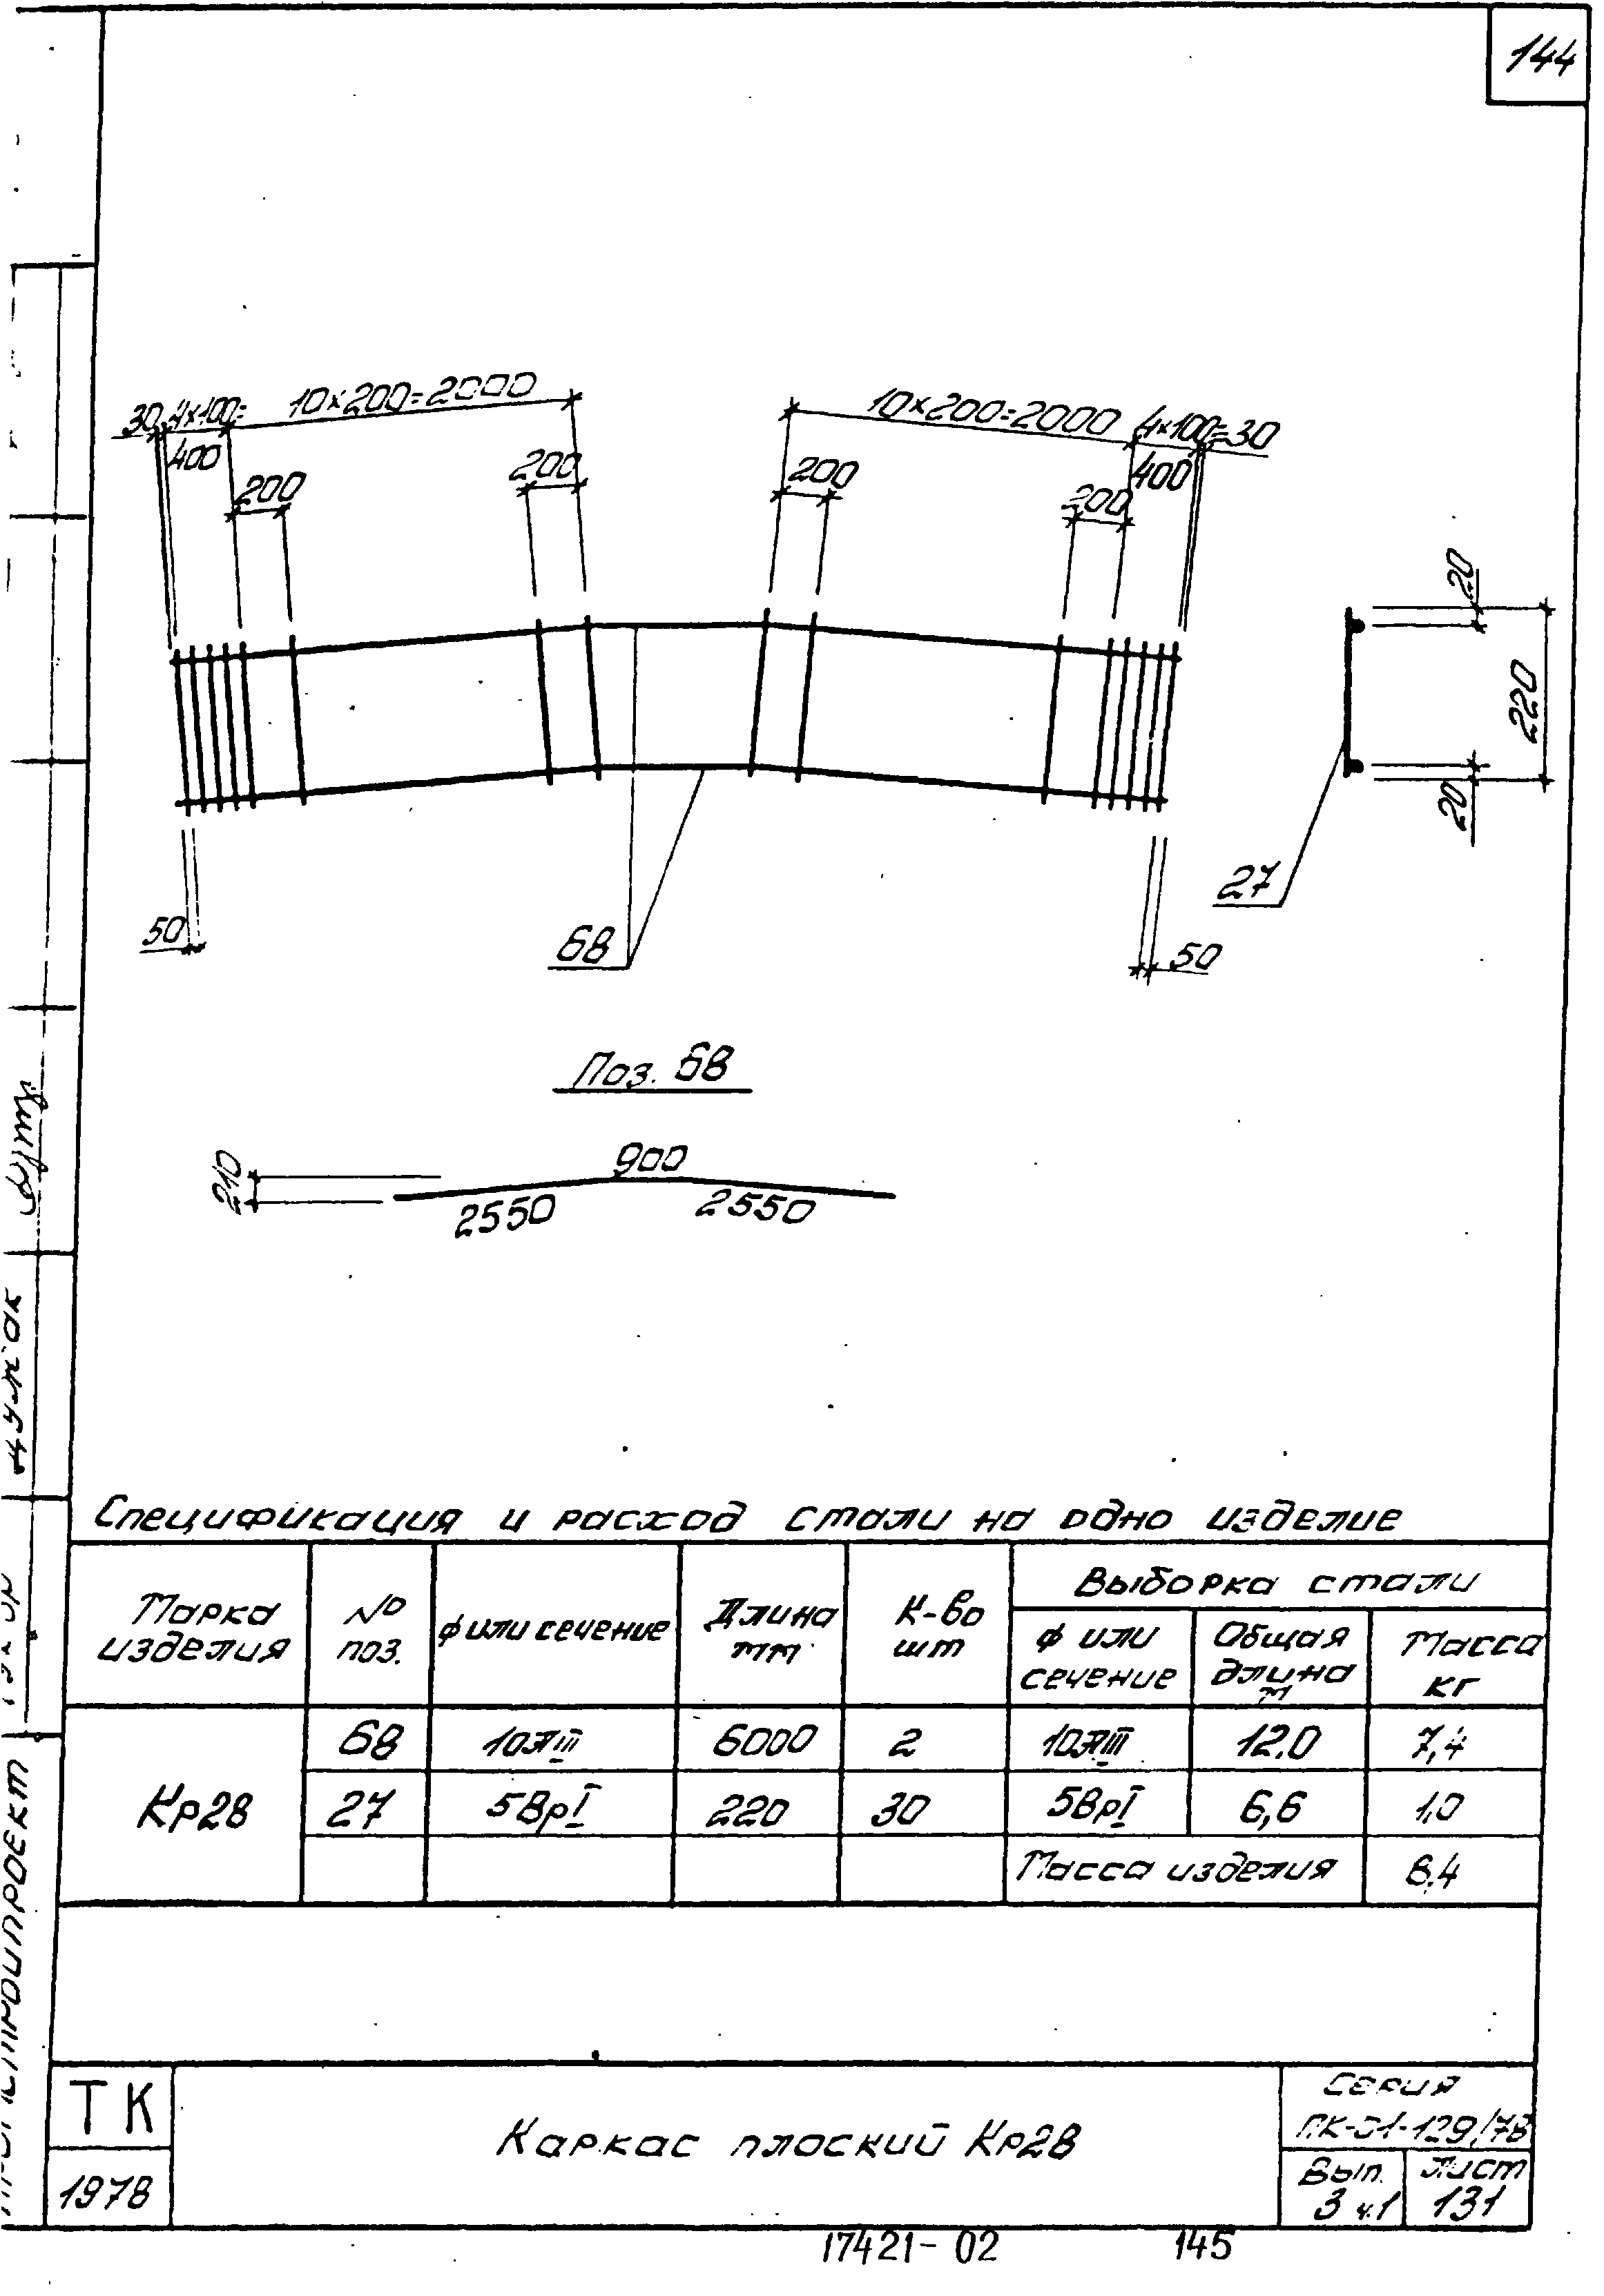 144
30 4×100= 10×200=2000
400
200
200
10×200=2000 4×100= 30
400
200
200
20
220
20
27
50
68
50
Поз. 68
210
900
2550
2550
Спецификация и расход стали на одно изделие
Марка изделия
№ поз.
ф или сечение
Длина мм
К-во шт
Выборка стали
ф или сечение
Общая длина м
Масса кг
Кр28
68 10АIII 6000 2 10АIII 12.0 7,4
27 5ВрI 220 30 5ВрI 6,6 1,0
Масса изделия 8.4
ТК
1978
Каркас плоский Кр28
Серия
ПК-01-129/78
Вып. 3 ч.1
Лист 131
17421-02 145